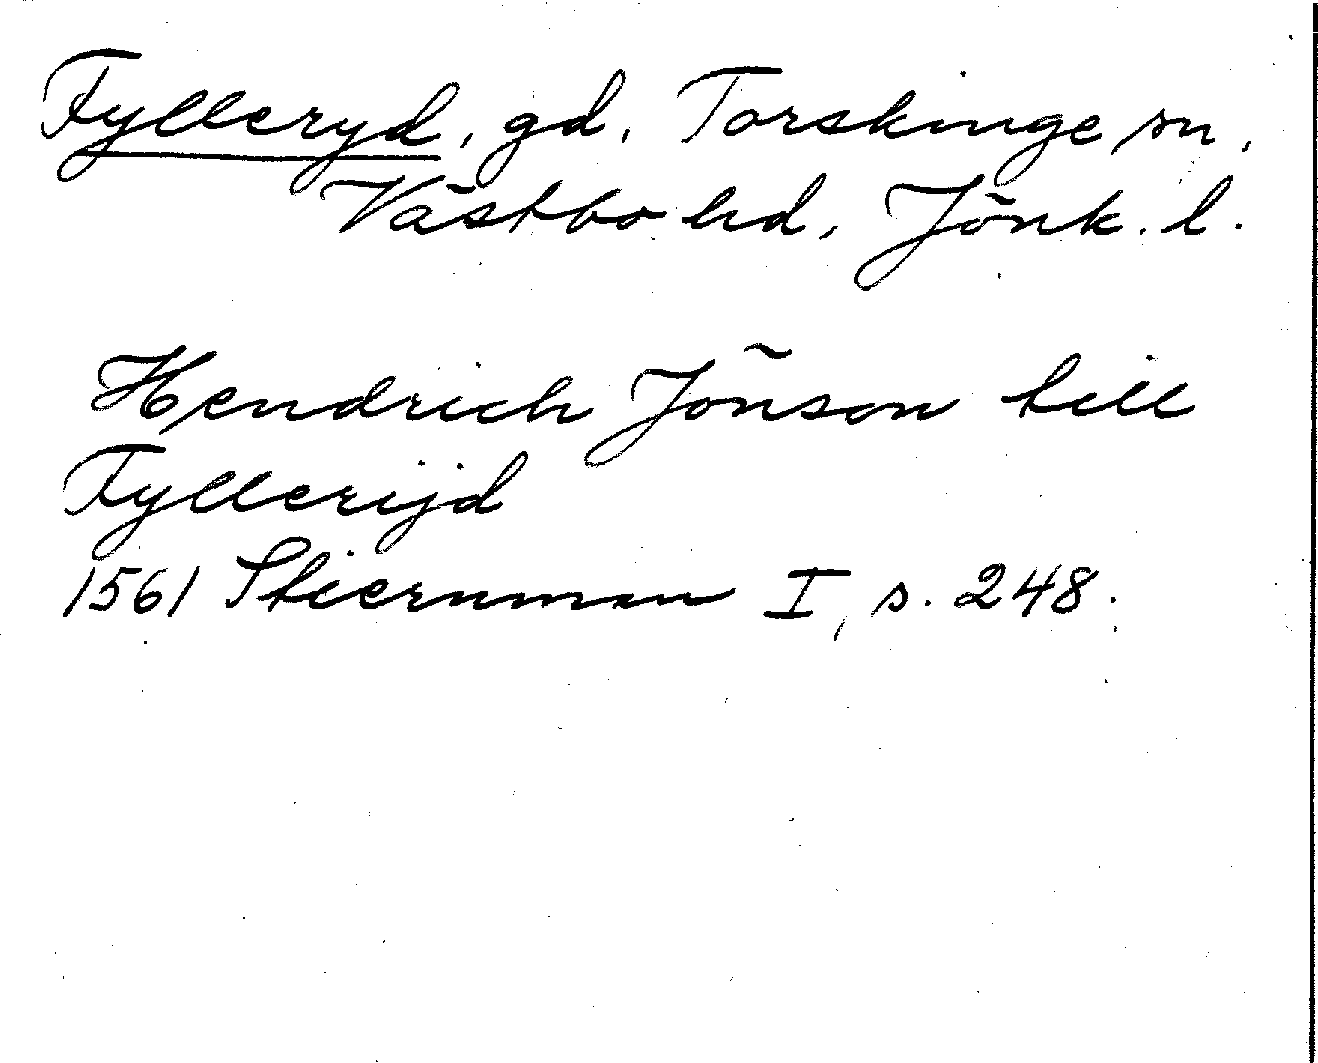 Fylleryd, gd, Torskinge sn,
Västbo hd, Jönk. l.
Hendrich Jönson till
Fyllerijd
1561 Stiernman I, s. 248.